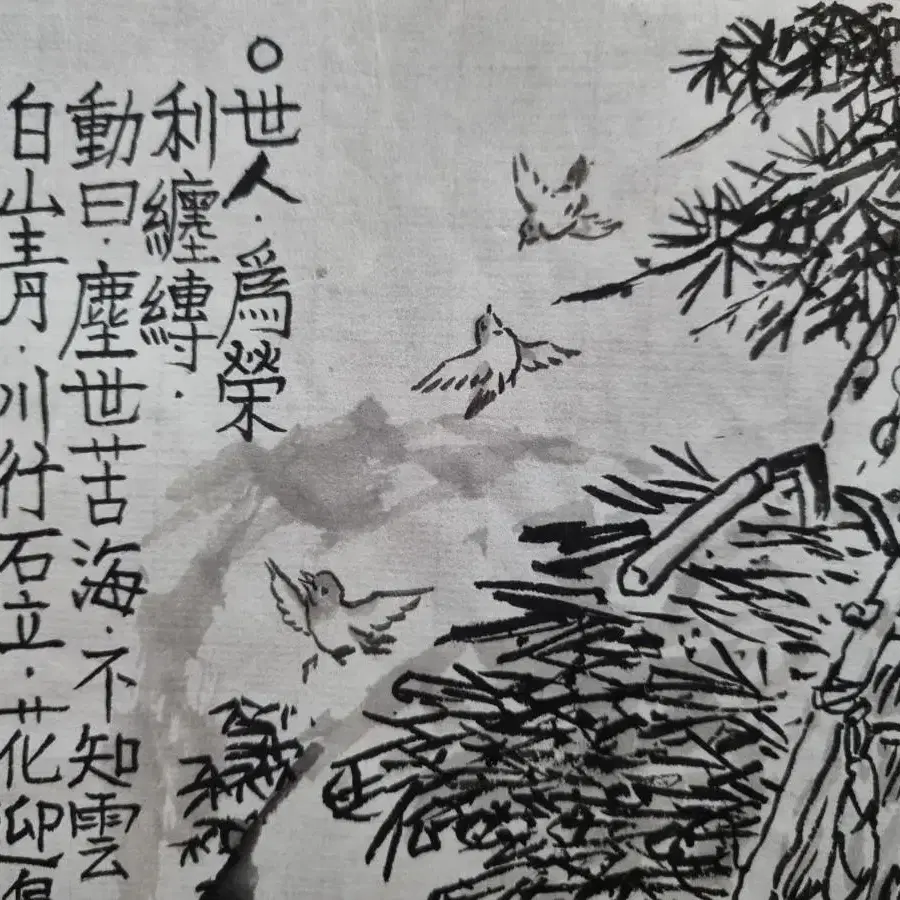 ○世人·為榮
利纏縛·
動曰·塵世苦海·不知雲
白山青·川行石立·花迎